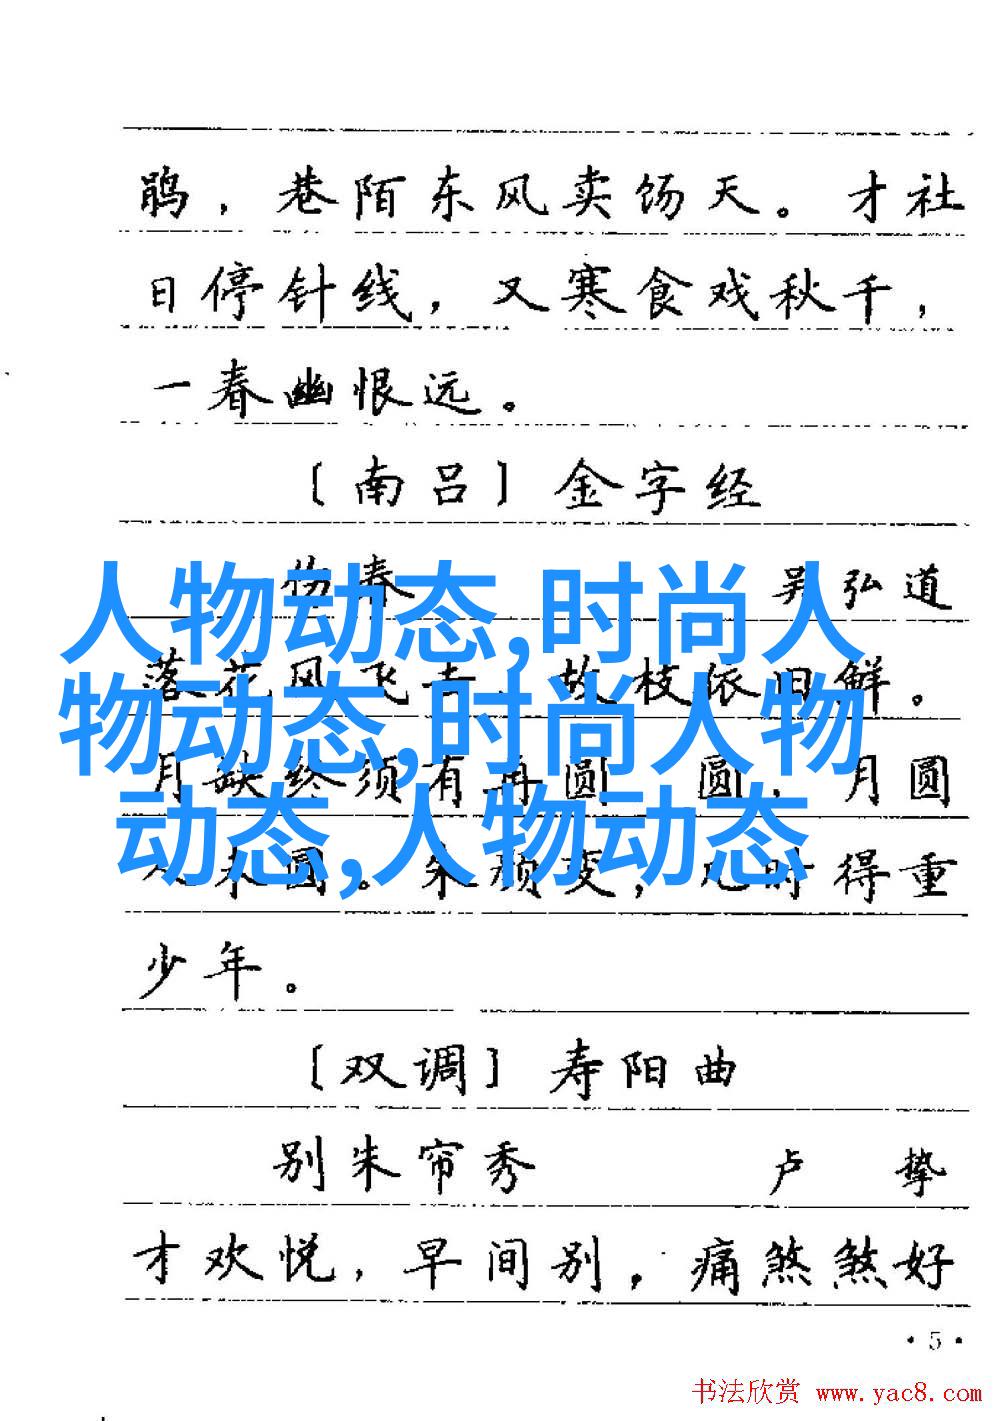 鹃，巷陌东风卖饧天。才社
日停针线，又寒食戏秋千，
一春幽恨远。
〔南吕〕金字经
伤春 吴弘道
落花风飞去，故枝依旧鲜。
月缺终须有再圆 圆，月圆
人未圆。朱颜变，几时得重
少年。
〔双调〕寿阳曲
别朱帘秀 卢挚
才欢悦，早间别，痛煞煞好
·5·
人物动态,时尚人
物动态,时尚人物
动态,人物动态
书法欣赏 www.yac8.com